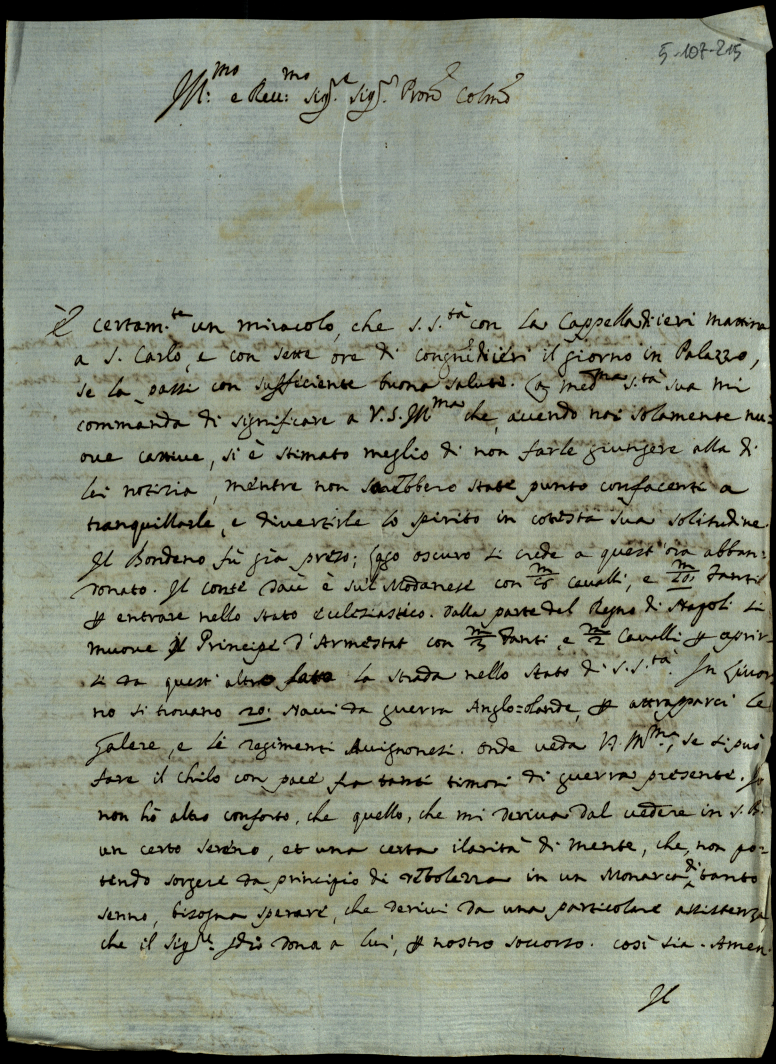 5-107-215
Ill:mo e Reu:mo Sig.r Sig.r Pron Colmo
È certam.te un miracolo, che S. S.tà con la Cappella di ieri mattina
a S. Carlo, e con sette ore di congne di ieri il giorno in Palazzo,
se la passi con sufficiente buona salute. La med.ma S.tà sua mi
commanda di significare a V. S. Ill.ma che, auendo noi solamente nu=
oue cattiue, si è stimato meglio di non farle giungere alla di
lei notizia, mentre non sarebbero state punto confacenti a
tranquillarle, e diuertirle lo spirito in cotesta sua solitudine.
Il Bondeno fù già preso; Lago oscuro si crede a quest'ora abban=
donato. Il conte Daù è sul Modanese con cavalli, e fanti
p entrare nello stato eclesiastico. Dalla parte del Regno di Napoli si
muoue il Principe d'Armestat con m/3 fanti, e m/2 Cavalli p aprir=
si da quest'altro lato la strada nello stato di S. S.tà. In Liuor=
no si trouano 20. Naui da guerra Anglo=olande, p attrapparci le
galere, e li regimenti Auignonesi. Onde ueda V. S. Ill.ma, se si può
fare il chilo con pace fra tanti timori di guerra presente. Io
non hò altro conforto, che quello, che mi deriua dal uedere in S. B.
un certo sereno, et una certa ilarità di mente, che, non po=
tendo sorgere da principio di debolezza in un Monarca di tanto
senno, bisogna sperare, che deriui da una particolare assistenza,
che il Sig.re Iddio dona a lui, p nostro soccorso. Così sia. Amen.
Il